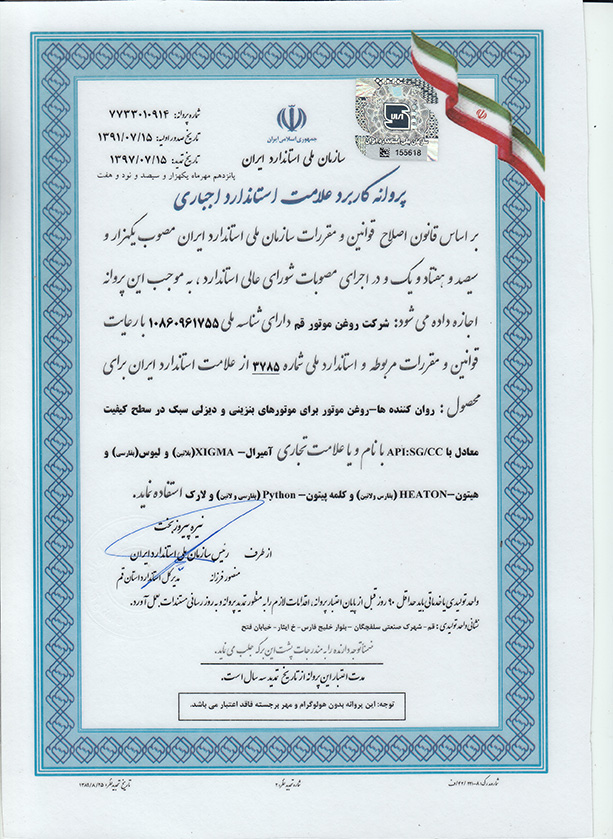 جمهوری اسلامی ایران
سازمان ملی استاندارد ایران
155618
شماره پروانه: ۷۷۳۳۰۱۰۹۱۴
تاریخ صدور اولیه: ۱۳۹۱/۰۷/۱۵
تاریخ تمدید: ۱۳۹۷/۰۷/۱۵
پانزدهم مهرماه یکهزار و سیصد و نود و هفت
پروانه کاربرد علامت استاندارد اجباری
بر اساس قانون اصلاح قوانین و مقررات سازمان ملی استاندارد ایران مصوب یکهزار و
سیصد و هفتاد و یک و در اجرای مصوبات شورای عالی استاندارد، به موجب این پروانه
اجازه داده می شود: شرکت روغن موتور قم دارای شناسه ملی ۱۰۸۶۰۹۶۱۷۵۵ با رعایت
قوانین و مقررات مربوطه و استاندارد ملی شماره ۳۷۸۵ از علامت استاندارد ایران برای
محصول: روان کننده ها-روغن موتور برای موتورهای بنزینی و دیزلی سبک در سطح کیفیت
معادل با API:SG/CC با نام و یا علامت تجاری آمیرال- XIGMA(بلاتین) و لیوس(بفارسی) و
هیتون-HEATON (بفارسی ولاتین) و کلمه پیتون- Python (بفارسی و لاتین) و لارک استفاده نماید.
نیره پیروزبخت
رئیس سازمان ملی استاندارد ایران
از طرف
منصور فرزانه
مدیر کل استاندارد استان قم
واحد تولیدی یا خدماتی باید حداقل ۹۰ روز قبل از پایان اعتبار پروانه، اقدامات لازم را به منظور تمدید پروانه و به روز رسانی مستندات، عمل آورد.
نشانی واحد تولیدی: قم- شهرک صنعتی سلفچگان- بلوار خلیج فارس- خ ایثار- خیابان فتح
ضمناً توجه دارنده را به مندرجات پشت این برگه جلب می نماید.
مدت اعتبار این پروانه از تاریخ تمدید سه سال است.
توجه: این پروانه بدون هولوگرام و مهر برجسته فاقد اعتبار می باشد.